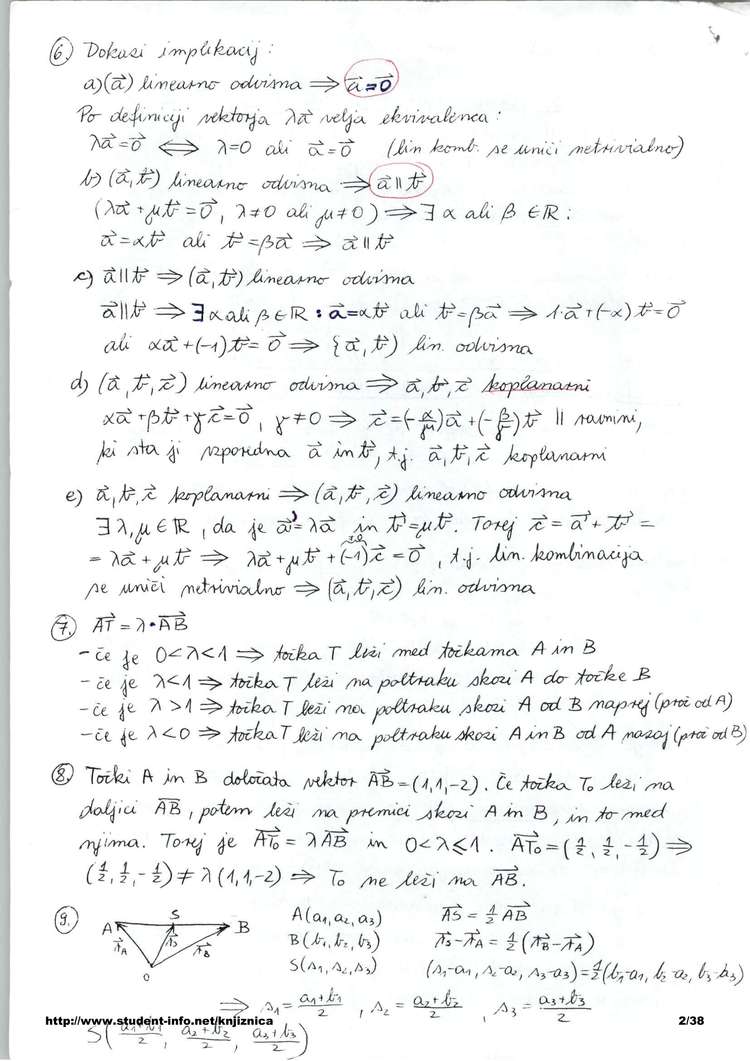 6. Dokazi implikacij:
a) (a⃗) linearno odvisna ⇒ a⃗ = 0⃗
Po definiciji vektorja λa⃗ velja ekvivalenca:
λa⃗ = 0⃗ ⇔ λ=0 ali a⃗ = 0⃗ (lin komb. se uniči netrivialno)
b) (a⃗, b⃗) linearno odvisna ⇒ a⃗ ∥ b⃗
(λa⃗ + μb⃗ = 0⃗, λ≠0 ali μ≠0) ⇒ ∃ α ali β ∈ ℝ:
a⃗ = αb⃗ ali b⃗ = βa⃗ ⇒ a⃗ ∥ b⃗
c) a⃗ ∥ b⃗ ⇒ (a⃗, b⃗) linearno odvisna
a⃗ ∥ b⃗ ⇒ ∃ α ali β ∈ ℝ : a⃗ = αb⃗ ali b⃗ = βa⃗ ⇒ 1·a⃗ + (-α)b⃗ = 0⃗
ali αa⃗ + (-1)b⃗ = 0⃗ ⇒ {a⃗, b⃗) lin. odvisna
d) (a⃗, b⃗, c⃗) linearno odvisna ⇒ a⃗, b⃗, c⃗ koplanarni
αa⃗ + βb⃗ + γc⃗ = 0⃗, γ≠0 ⇒ c⃗ = (-α/γ)a⃗ + (-β/γ)b⃗ ∥ ravnini,
ki sta ji vzporedna a⃗ in b⃗, t.j. a⃗, b⃗, c⃗ koplanarni
e) a⃗, b⃗, c⃗ koplanarni ⇒ (a⃗, b⃗, c⃗) linearno odvisna
∃ λ, μ ∈ ℝ, da je a⃗' = λa⃗ in b⃗' = μb⃗. Torej c⃗ = a⃗' + b⃗' =
= λa⃗ + μb⃗ ⇒ λa⃗ + μb⃗ + (-1)c⃗ = 0⃗, t.j. lin. kombinacija
≠0
se uniči netrivialno ⇒ (a⃗, b⃗, c⃗) lin. odvisna
7. AT⃗ = λ·AB⃗
- če je 0<λ<1 ⇒ točka T leži med točkama A in B
- če je λ<1 ⇒ točka T leži na poltraku skozi A do točke B
- če je λ>1 ⇒ točka T leži na poltraku skozi A od B naprej (proč od A)
- če je λ<0 ⇒ točka T leži na poltraku skozi A in B od A nazaj (proč od B)
8. Točki A in B določata vektor AB⃗ = (1,1,-2). Če točka T₀ leži na
daljici AB, potem leži na premici skozi A in B, in to med
njima. Torej je AT₀⃗ = λAB⃗ in 0<λ≤1. AT₀⃗ = (1/2, 1/2, -1/2) ⇒
(1/2, 1/2, -1/2) ≠ λ(1,1,-2) ⇒ T₀ ne leži na AB.
9. A S B r⃗A r⃗S r⃗B O
A(a₁, a₂, a₃) AS⃗ = 1/2 AB⃗
B(b₁, b₂, b₃) r⃗S - r⃗A = 1/2 (r⃗B - r⃗A)
S(s₁, s₂, s₃) (s₁-a₁, s₂-a₂, s₃-a₃) = 1/2 (b₁-a₁, b₂-a₂, b₃-a₃)
⇒ s₁ = (a₁+b₁)/2, s₂ = (a₂+b₂)/2, s₃ = (a₃+b₃)/2
http://www.student-info.net/knjiznica 2/38
S((a₁+b₁)/2, (a₂+b₂)/2, (a₃+b₃)/2)